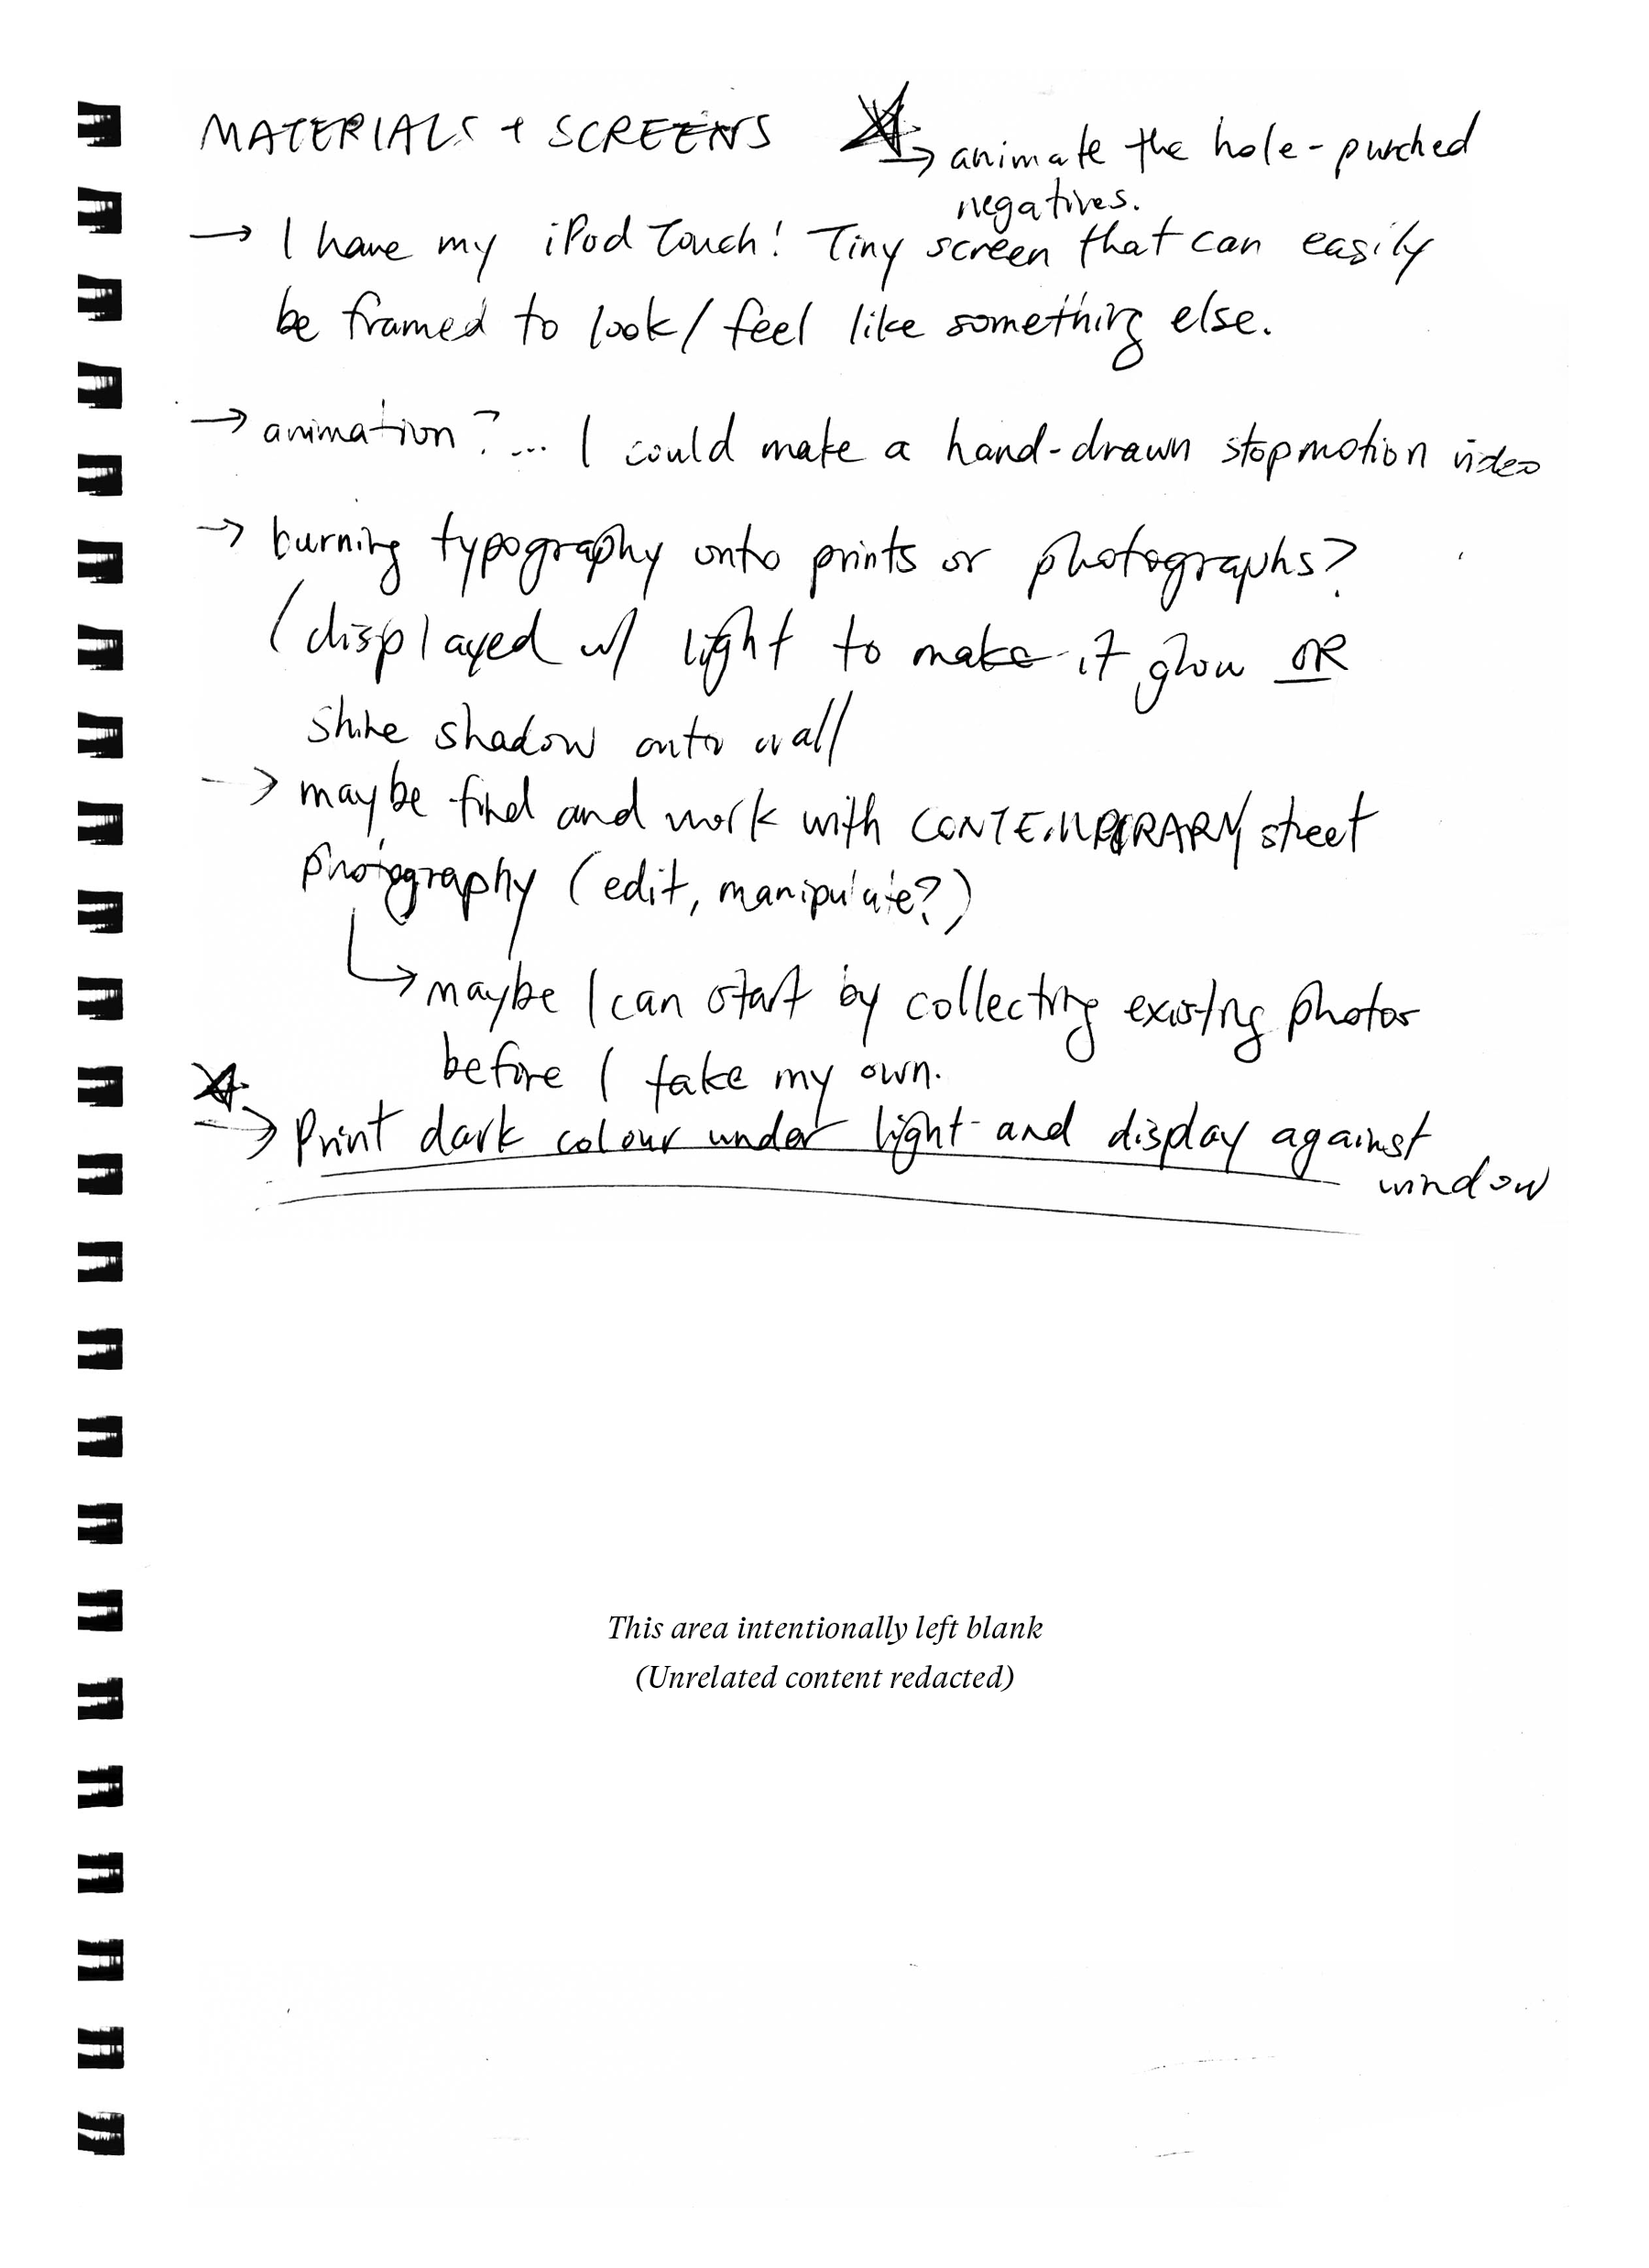 MATERIALS + SCREENS
→ animate the hole-punched
negatives.
→ I have my iPod Touch! Tiny screen that can easily
be framed to look/feel like something else.
→ animation?... I could make a hand-drawn stopmotion video
→ burning typography onto prints or photographs?
(displayed w/ light to make it glow OR
shine shadow onto wall
→ maybe find and work with CONTEMPORARY street
photography (edit, manipulate?)
→ maybe I can start by collecting existing photos
before I take my own.
→ Print dark colour under light and display against
window
This area intentionally left blank
(Unrelated content redacted)